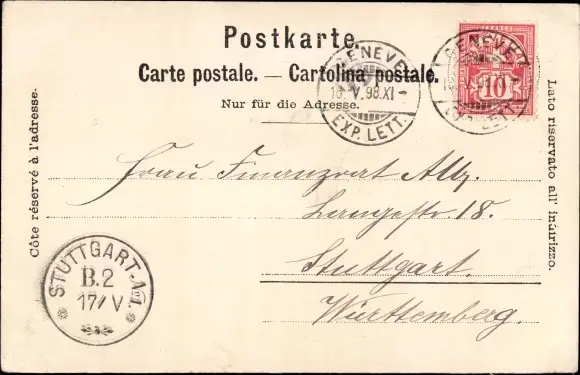 Postkarte.
Carte postale. — Cartolina postale.
Nur für die Adresse.
Côte réservé à l'adresse.
Lato riservato all' indirizzo.
GENEVE
16. V. 98. XI –
EXP. LETT.
GENEVE
10
Frau Finanzrat Alb,
Langestr. 18.
Stuttgart.
Württemberg.
STUTTGART
B. 2
17/ V